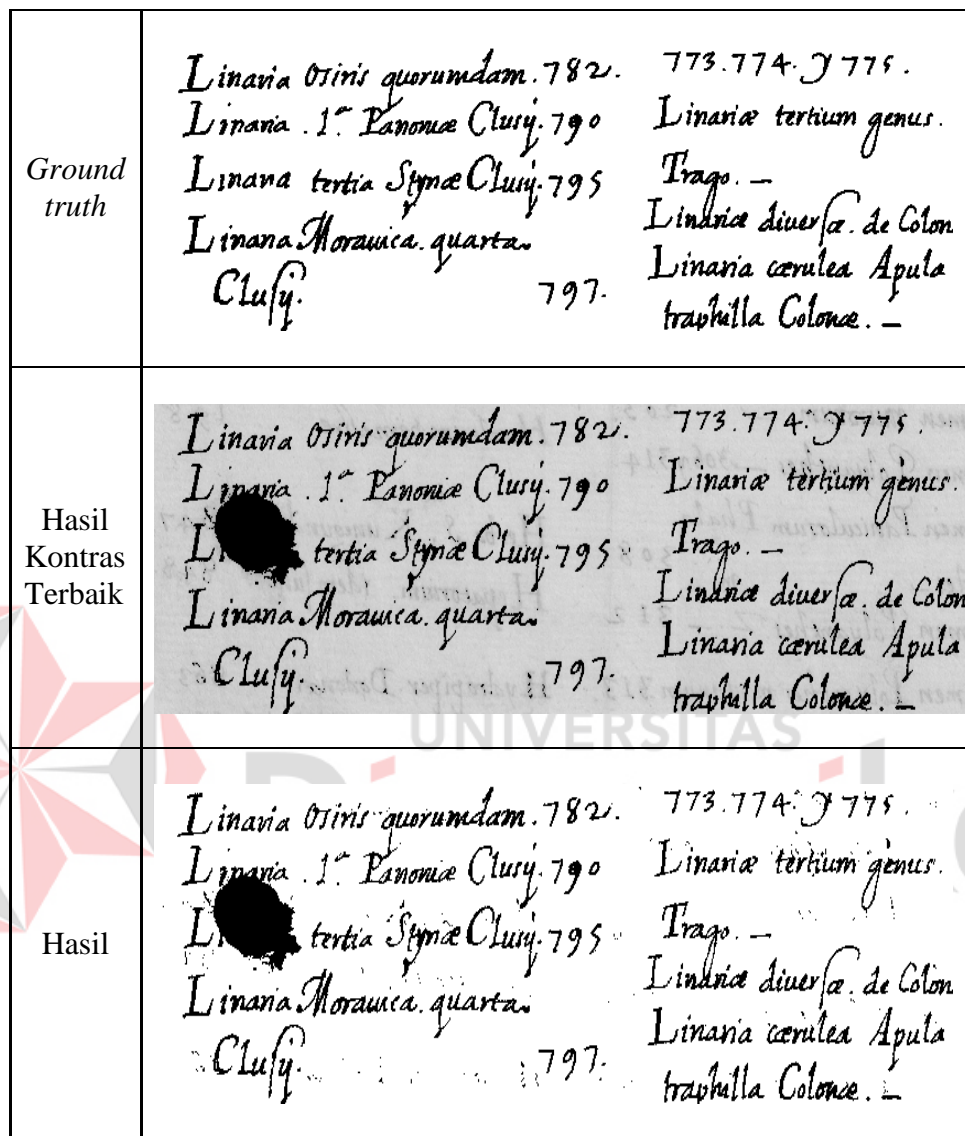 Ground
truth
Linaria Osiris quorumdam. 782.
Linaria . 1ª Panoniæ Clusij. 790
Linaria tertia Styriæ Clusij. 795
Linaria Morauica. quarta.
Clusij. 797.
773.774. y 775.
Linariæ tertium genus.
Trago. —
Linariæ diuersæ. de Colon
Linaria cærulea Apula
traphilla Colonæ. —
Hasil
Kontras
Terbaik
Linaria Osiris quorumdam. 782.
Linaria . 1ª Panoniæ Clusij. 790
tertia Styriæ Clusij. 795
Linaria Morauica. quarta.
Clusij. 797.
773.774. y 775.
Linariæ tertium genus.
Trago. —
Linariæ diuersæ. de Colon
Linaria cærulea Apula
traphilla Colonæ. —
UNIVERSITAS
Hasil
Linaria Osiris quorumdam. 782.
Linaria . 1ª Panoniæ Clusij. 790
tertia Styriæ Clusij. 795
Linaria Morauica. quarta.
Clusij. 797.
773.774. y 775.
Linariæ tertium genus.
Trago. —
Linariæ diuersæ. de Colon
Linaria cærulea Apula
traphilla Colonæ. —